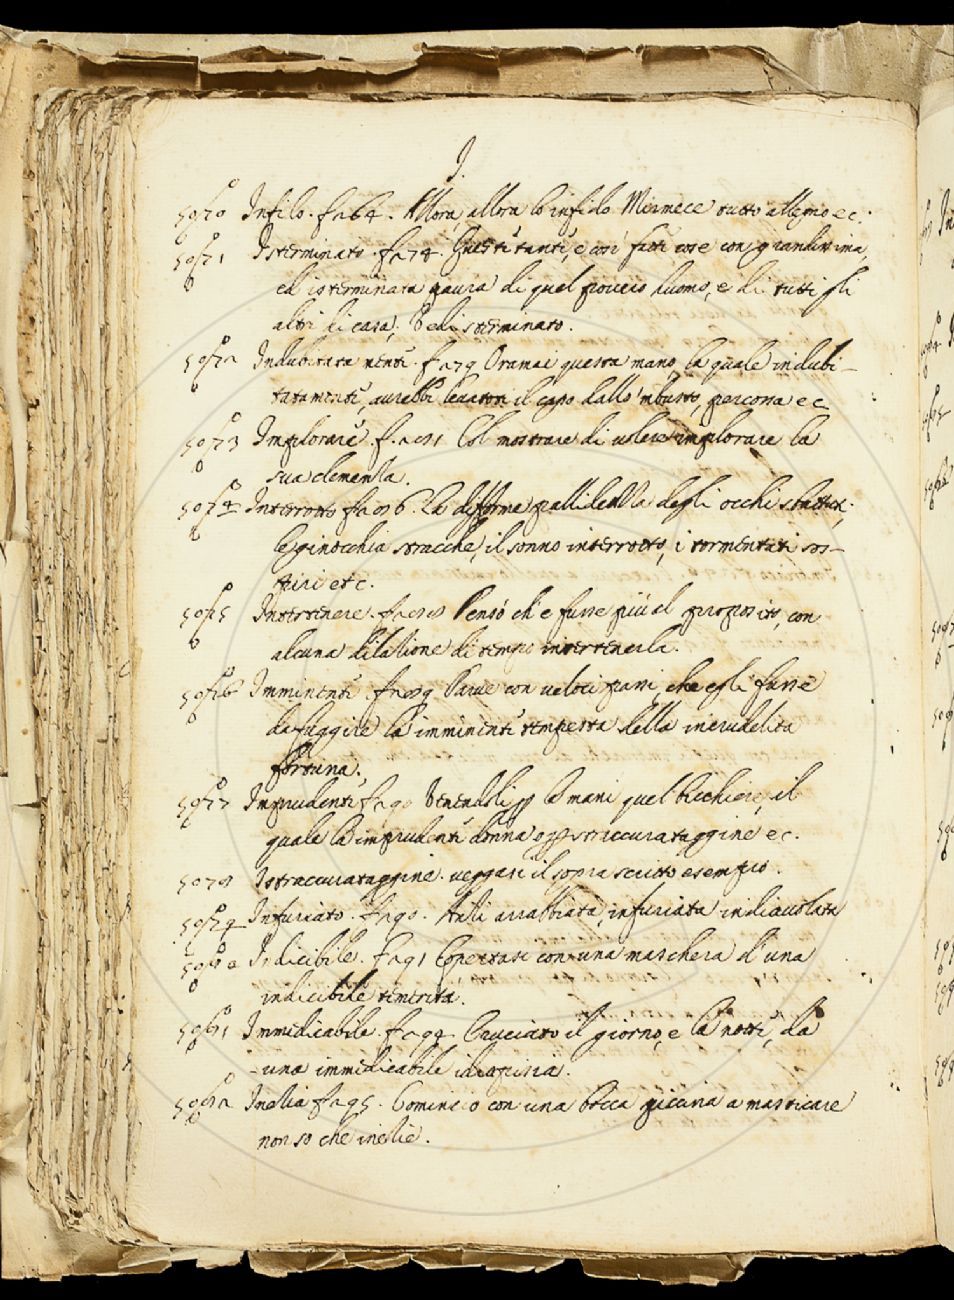 I.
5070 Infilo. f. 264. Allora, allora lo infilo Mirmece tutto allegro ec.
5071 Isterminato. f. 274. Questi tanti, e così fatti cose con grandissima,
ed isterminata paura di quel poveccio duomo, e di tutti gli
altri di casa; Vedi sterminato.
5072 Indubitatamente. f. 279 Oramai questa mano, la quale indubi-
tatamente, avrebbe levatoti il capo dallo 'mbusto, percossa ec
5073 Implorare. f. 281 Col mostrare di volere implorare la
sua clemenza.
5074 Interrotto f. 286. La difforme pallidezza degli occhi
le ginocchia stracche, il sonno interrotto, i tormentati sos-
piri etc.
5075 Intertenere. f. 288 Pensò ch'e fusse più al proposito, con
alcuna dilazione di tempo intertenerla.
5076 Imminente. f. 289 Parve con veloci passi, che egli fusse
da fuggire la imminente tempesta della incrudelita
fortuna.
5077 Imprudente f. 290 Tenendoli per le mani quel bicchiere, il
quale la imprudente donna per istraccurataggine ec.
5078 Istraccurataggine. veggasi il sopra scritto esempio.
5079 Infuriato. f. 290. Anzi arrabbiata, infuriata indiavolata
5080 Indicibile. f. 291 Copertasi con una maschera d'una
indicibile temerità.
5081 Immedicabile. f. 294 Crucciato il giorno, e la notte, da
una immedicabile idropisia.
5082 Inezia f. 295. Cominciò con una bocca piccina a masticare
non so che inezie.